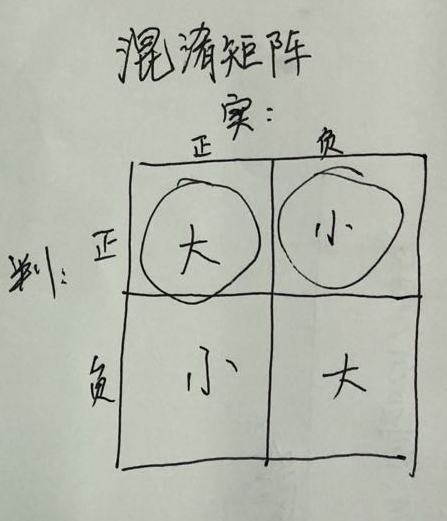 混淆矩阵
实:
正 负
判: 正 大 小
负 小 大